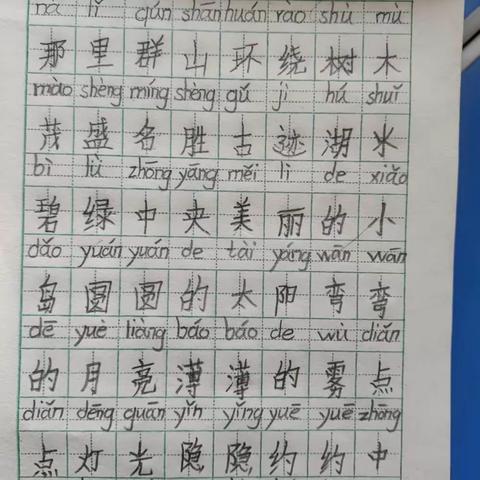 nà lǐ qún shān huán rào shù mù
那里群山环绕树木
mào shèng míng shèng gǔ jì hú shuǐ
茂盛名胜古迹湖水
bì lǜ zhōng yāng měi lì de xiǎo
碧绿中央美丽的小
dǎo yuán yuán de tài yáng wān wān
岛圆圆的太阳弯弯
dē yuè liàng báo báo de wù diǎn
的月亮薄薄的雾点
diǎn dēng guān yǐn yǐng yuē yuē zhōng
点灯光隐隐约约中